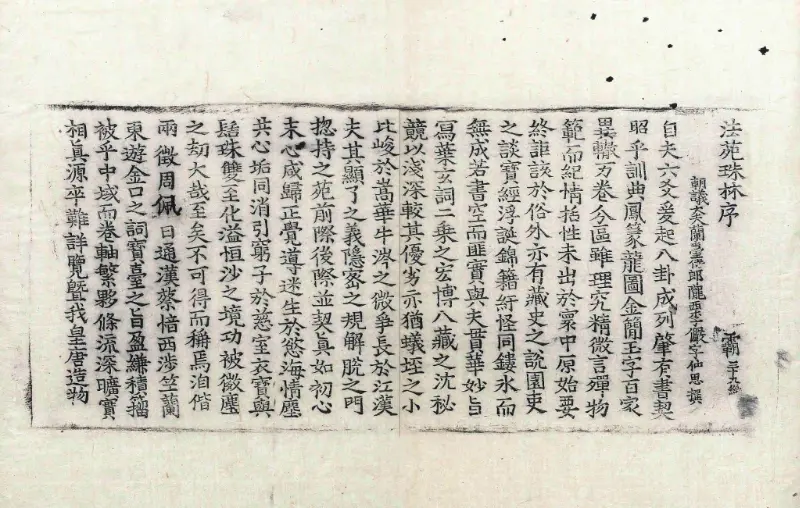 法苑珠林序 霸
朝議大夫蘭臺侍郎隴西李儼字仙思撰
自夫六爻爰起八卦成列肇有書契
昭乎訓典鳳篆龍圖金簡玉字百家
異轍万卷分區雖理究精微言殫物
範而紀情括性未出於寰中原始要
終詎該於俗外亦有藏史之說園吏
之談寶經浮誕錦籍紆怪同鏤氷而
無成若書空而匪實與夫貫華妙旨
寫葉玄詞二乗之宏博八藏之沈秘
競以淺深較其優劣亦猶蟻垤之小
比峻於嵩華牛涔之微爭長於江漢
夫其顯了之義隱密之規解脫之門
揔持之苑前際後際並契真如初心
末心咸歸正覺導迷生於慾海情塵
共心垢同消引窮子於慈室衣寶與
髻珠雙至化溢恒沙之境功被微塵
之刧大哉至矣不可得而稱焉洎偕
兩徵周佩日通漢蔡愔西涉竺蘭
東遊金口之詞寶臺之旨盈縑積籀
被乎中域而卷軸繁夥條流深曠實
相真源卒難詳覽曁我皇唐造物